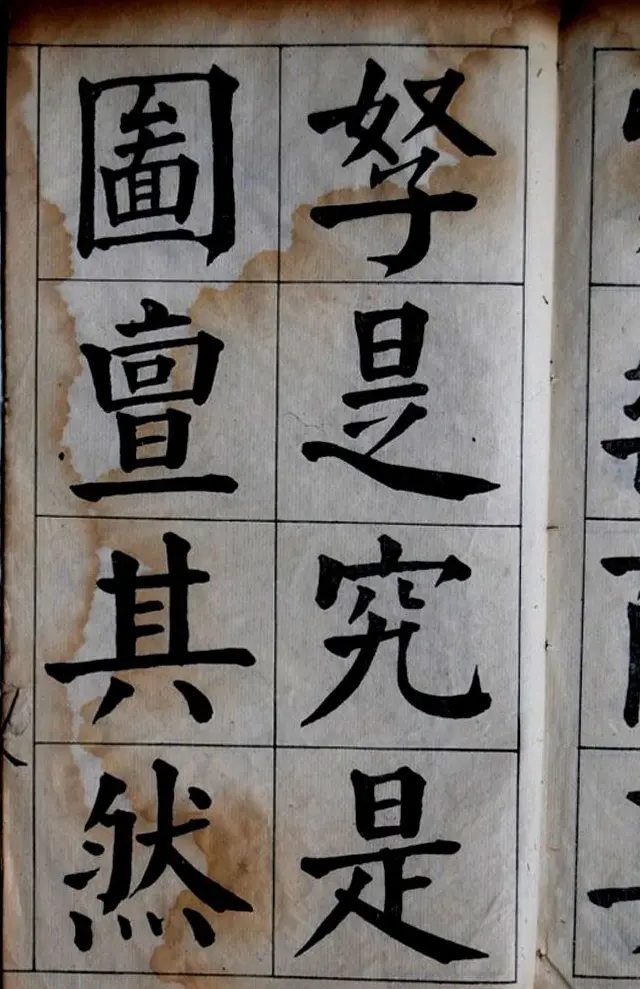 孥是究是
圖亶其然